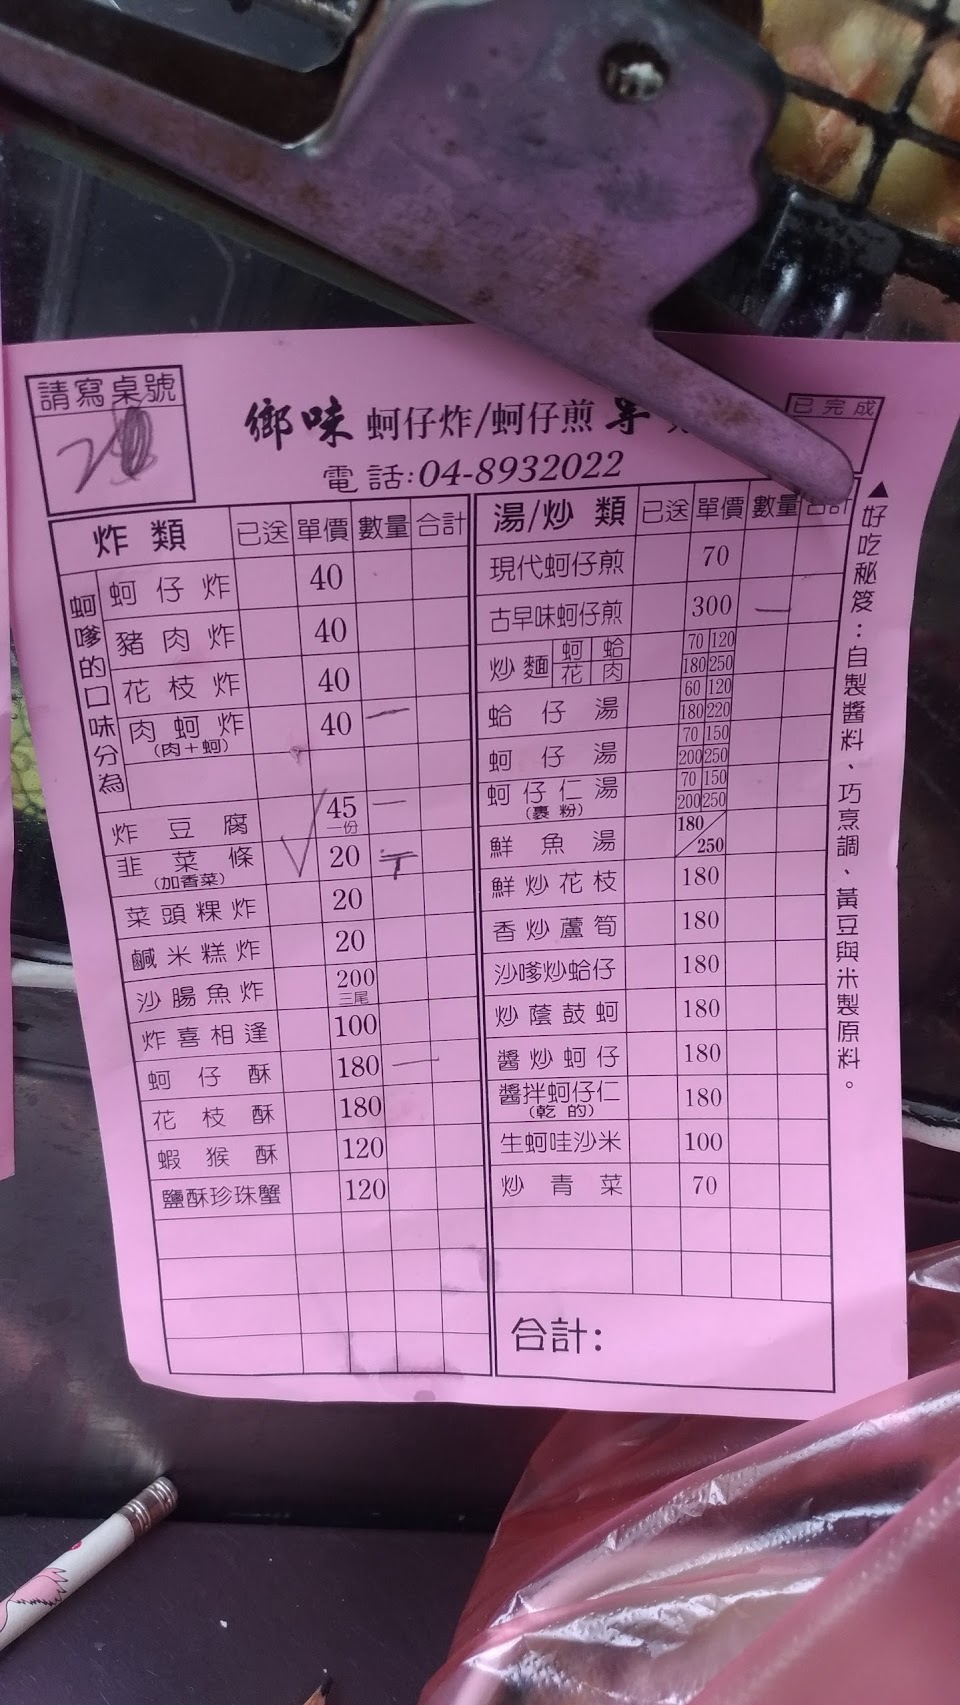 請寫桌號
2
鄉味 蚵仔炸/蚵仔煎 專
已完成
電話:04-8932022
炸類 已送 單價 數量 合計
蚵嗲的口味分為
蚵仔炸 40
豬肉炸 40
花枝炸 40
肉蚵炸 40 一
(肉+蚵)
炸豆腐 45 一
一份
韭菜條 20
(加香菜)
菜頭粿炸 20
鹹米糕炸 20
沙腸魚炸 200
三尾
炸喜相逢 100
蚵仔酥 180 一
花枝酥 180
蝦猴酥 120
鹽酥珍珠蟹 120
湯/炒類 已送 單價 數量 合計
現代蚵仔煎 70
古早味蚵仔煎 300 一
炒麵 蚵 蛤 70 120
花 肉 180 250
蛤仔湯 60 120
180 220
蚵仔湯 70 150
200 250
蚵仔仁湯 70 150
(裹粉) 200 250
鮮魚湯 180/250
鮮炒花枝 180
香炒蘆筍 180
沙嗲炒蛤仔 180
炒蔭鼓蚵 180
醬炒蚵仔 180
醬拌蚵仔仁 180
(乾的)
生蚵哇沙米 100
炒青菜 70
合計:
▲好吃秘笈:自製醬料、巧烹調、黃豆與米製原料。